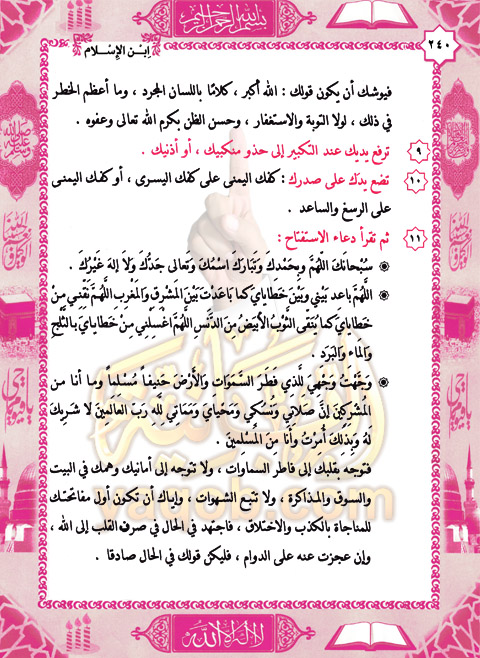 بسم الله الرحمن الرحيم
٢٤٠
ابن الإسلام
فيوشك أن يكون قولك : الله أكبر ، كلامًا باللسان المجرد ، وما أعظم الخطر
في ذلك ، لولا التوبة والاستغفار ، وحسن الظن بكرم الله تعالى وعفوه .
٩ ترفع يديك عند التكبير إلى حذو منكبيك ، أو أذنيك .
١٠ تضع يدَك على صدرك : كفك اليمنى على كفك اليسرى ، أو كفك اليمنى
على الرسغ والساعد .
١١ ثم تقرأ دعاء الاستفتاح :
سُبْحَانَكَ اللَّهُمَّ وَبِحَمْدِكَ وَتَبَارَكَ اسْمُكَ وَتَعَالى جَدُّكَ وَلَا إِلهَ غَيْرُكَ .
اللَّهُمَّ باعد بَيْنِي وَبَيْنَ خَطَايَايَ كما بَاعَدْتَ بَيْنَ المَشْرِقِ وَالْمَغْرِبِ اللَّهُمَّ نَقِّنِي مِنْ
خَطَايَايَ كما يُنَقَّى الثَّوْبُ الأَبْيَضُ مِنَ الدَّنَسِ اللَّهُمَّ اغْسِلْنِي مِنْ خَطَايَايَ بالثَّلْجِ
والماء والبَرَد .
وَجَّهْتُ وَجْهِيَ لِلَّذِي فَطَرَ السَّمَوَات وَالأَرْضَ حَنِيفاً مُسْلِماً وما أنا من
المُشْرِكِينَ إِنَّ صَلَاتِي وَنُسُكِي وَمَحْيَايَ وَمَمَاتِي لِلهِ رَبِّ العَالَمِينَ لَا شَرِيكَ
لَهُ وَبِذلِكَ أُمِرْتُ وَأَنَا مِنَ المُسْلِمِينَ .
فتوجه بقلبك إلى فاطر السماوات ، ولا تتوجه إلى أمانيك وهمك في البيت
والسوق والمذاكرة ، ولا تتبع الشهوات ، وإياك أن تكون أول مفاتحتك
للمناجاة بالكذب والاختلاق ، فاجتهد في الحال في صرف القلب إلى الله ،
وإن عجزت عنه على الدوام ، فليكن قولك في الحال صادقا .
yaqob.com
لا إله إلا الله